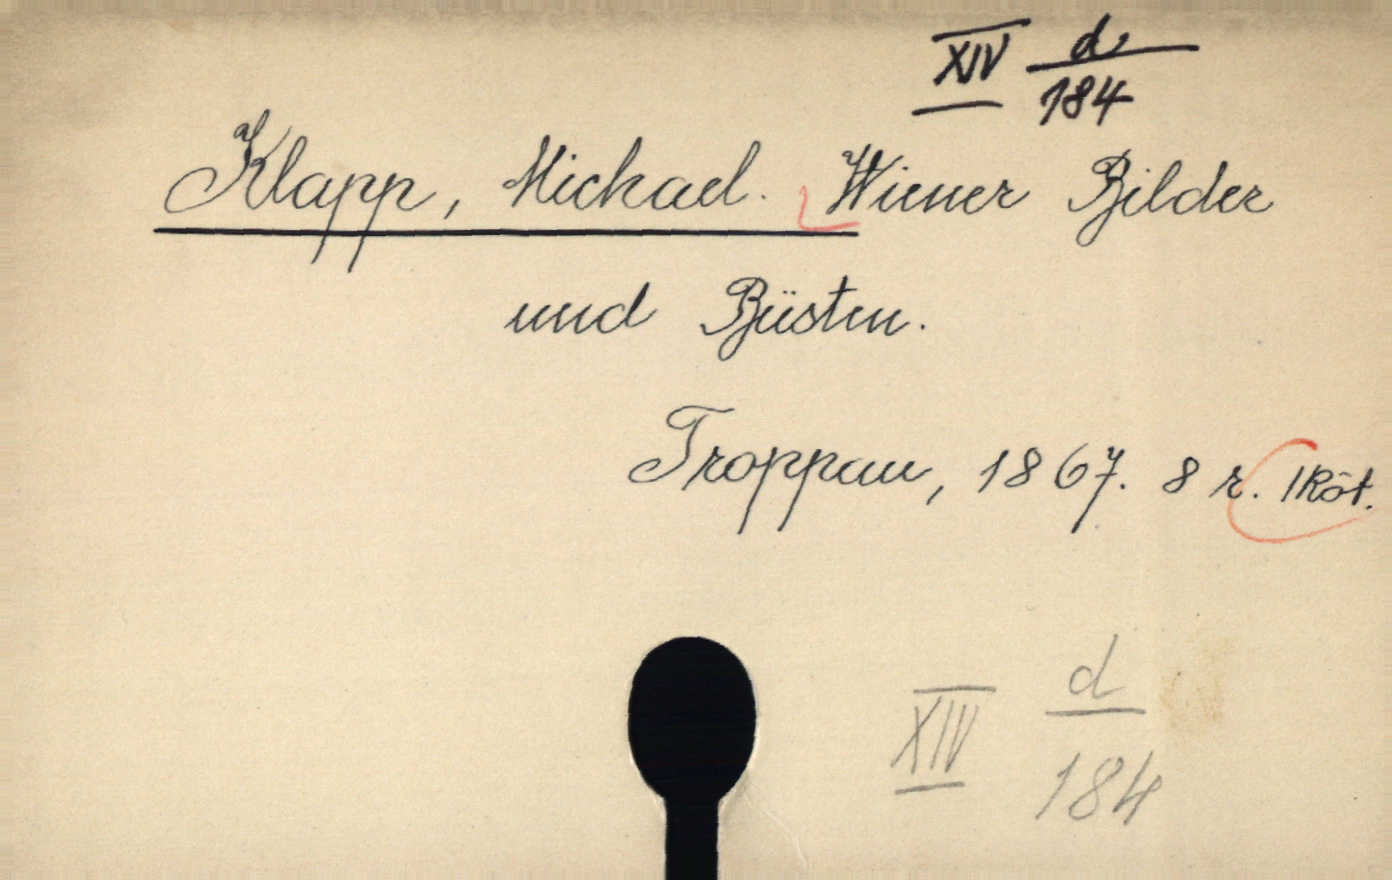 XIV d
184
Klapp, Michael. Wiener Bilder
und Büsten.
Troppau, 1867. 8 r. 1 Röt.
XIV d
184